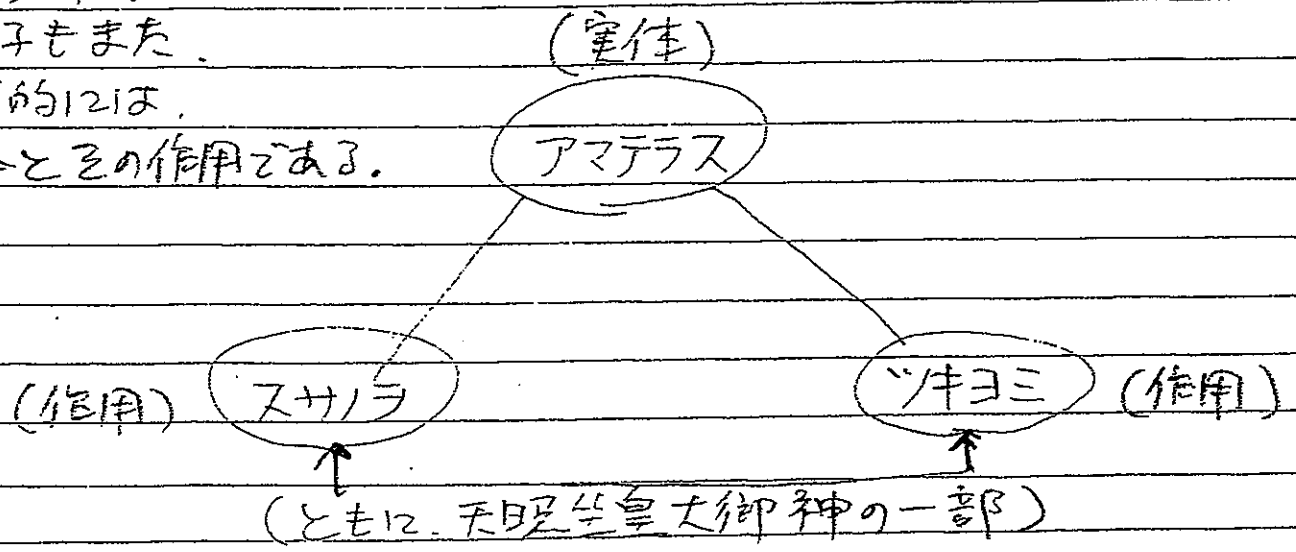 子もまた、
的には、
とその作用である。
(実体)
アマテラス
(作用) スサノヲ
ツキヨミ (作用)
(ともに、天照坐皇大御神の一部)